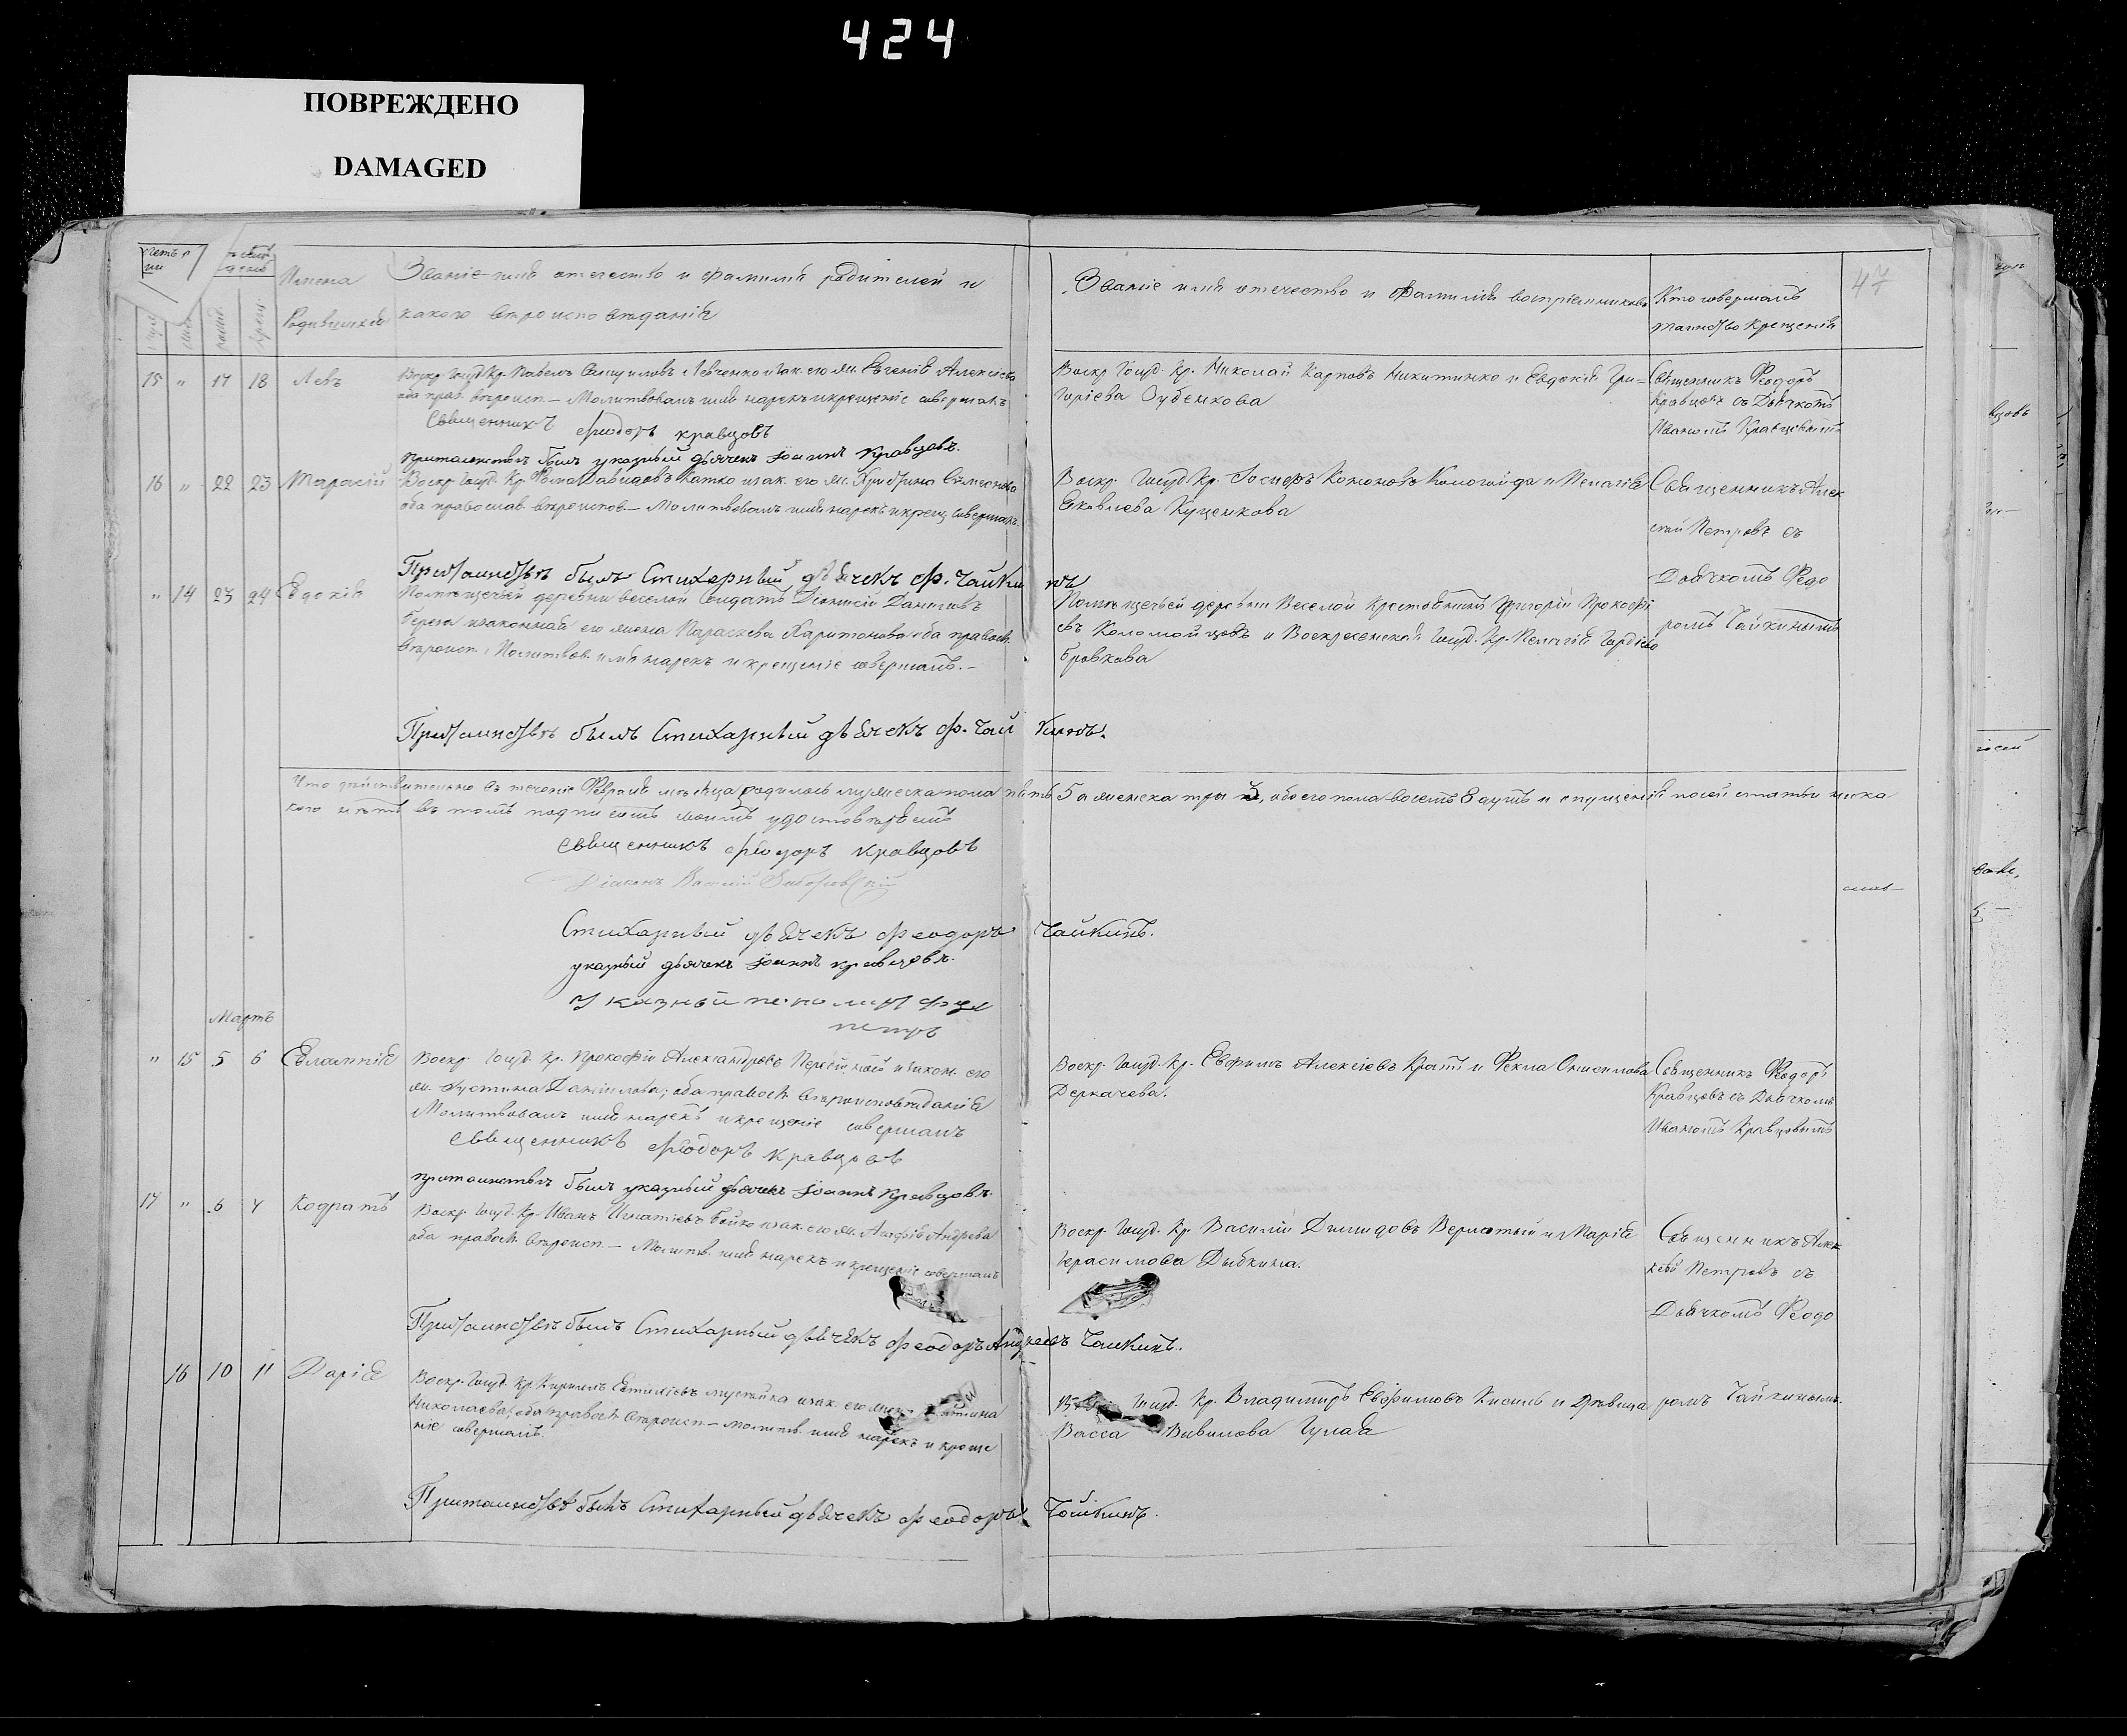 424
ПОВРЕЖДЕНО
DAMAGED
47
Имена Родившихся
Званіе имя отечество и фамилія родителей и
какого вѣроисповѣданія
Званіе имя отечество и фамилія воспріемниковъ
Кто совершалъ
таинство крещенія
15 " 17 18 Левъ
Воскр. Госуд. Кр. Павелъ Самуиловъ Левченко и зак. его ж. Евгенія Алексіева
оба прав. вѣроисп. — Молитвовалъ имя нарекъ и крещеніе совершалъ
Священникъ Ѳеодоръ Кравцовъ
При таинствѣ былъ указный дьячекъ Іоаннъ Кравцовъ.
Воскр. Госуд. Кр. Николай Карповъ Никитинко и Евдокія Гри=
горіева Зубенкова
Священникъ Ѳеодоръ
Кравцовъ съ Дьячкомъ
Иваномъ Кравцовымъ
16 " 22 23 Тарасій
Воскр. Госуд. Кр. Ѳома Давидовъ Катко и зак. его ж. Христина
оба православ. вѣроиспов. — Молитвовалъ имя нарекъ и крещ. совершалъ
При таинствѣ былъ Стихарный дьячекъ Ѳ. Чайкинъ
Воскр. Госуд. Кр. Іосифъ Кононовъ Кологойда и Пелагія
Яковлева Куценкова
Священникъ Алек
сѣй Петровъ съ
Дьячкомъ Ѳедо
ромъ Чайкинымъ
" 14 23 24 Евдокія
Помѣщечьей деревни Веселой Солдатъ Діонисій Даниловъ
Берега и законная его жена Параскева Харитонова оба правосл.
вѣроисп. Молитвов. имя нарекъ и крещеніе совершалъ. —
При таинствѣ былъ Стихарный дьячекъ Ѳ. Чайкинъ.
Помѣщечьей деревни Веселой Крестьянинъ Григорій Прокофі
евъ Коломойцовъ и Воскресенской Госуд. Кр. Пелагія Гордѣева
Бровкова
Что дѣйствительно въ теченіе Февраля мѣсяца родилось мужеска пола пять 5 а женска три 3, обоего пола восемь 8 душъ и опущенія по сей статьи ника
кого нѣтъ въ томъ подписомъ своимъ удостовѣряемъ
Священникъ Ѳеодоръ Кравцовъ
Діаконъ Василій
Стихарный дьячекъ Ѳеодоръ Чайкинъ.
указный дьячекъ Іоаннъ Кравцовъ.
Указный пономарь
Петръ
Мартъ
" 15 5 6 Евлампія
Воскр. Госуд. Кр. Прокофій Александровъ и закон. его
ж. Іустина Данилова; оба правосл. вѣроисповѣданія
Молитвовалъ имя нарекъ и крещеніе совершалъ
Священникъ Ѳеодоръ Кравцовъ
При таинствѣ былъ указный дьячекъ Іоаннъ Кравцовъ.
Воскр. Госуд. Кр. Евфимъ Алексіевъ Кратъ и Ѳекла Онисимова
Деркачева.
Священникъ Ѳеодоръ
Кравцовъ съ Дьячкомъ
Иваномъ Кравцовымъ
17 " 6 7 Кодратъ
Воскр. Госуд. Кр. Иванъ Игнатіевъ Бойко и зак. его ж. Агафія Андреева
оба правосл. вѣроисп. — Молитв. имя нарекъ и крещеніе совершалъ
При таинствѣ былъ Стихарный дьячекъ Ѳеодоръ Андреевъ Чайкинъ.
Воскр. Госуд. Кр. Василій Вермотый и Марія
Герасимова Дыбкина.
Священникъ Алек
сѣй Петровъ съ
Дьячкомъ Ѳеодо
ромъ Чайкинымъ.
16 10 11 Дарія
Воскр. Госуд. Кр. Кириллъ Евтихіевъ Мустяйка и зак. его жена
Николаева; оба правосл. вѣроисп. — Молитв. имя нарекъ и креще
ніе совершалъ.
При таинствѣ былъ Стихарный дьячекъ Ѳеодоръ Чайкинъ.
Госуд. Кр. Владимиръ Евфимовъ Кисиль и дѣвица
Васса Вавилова Гулая